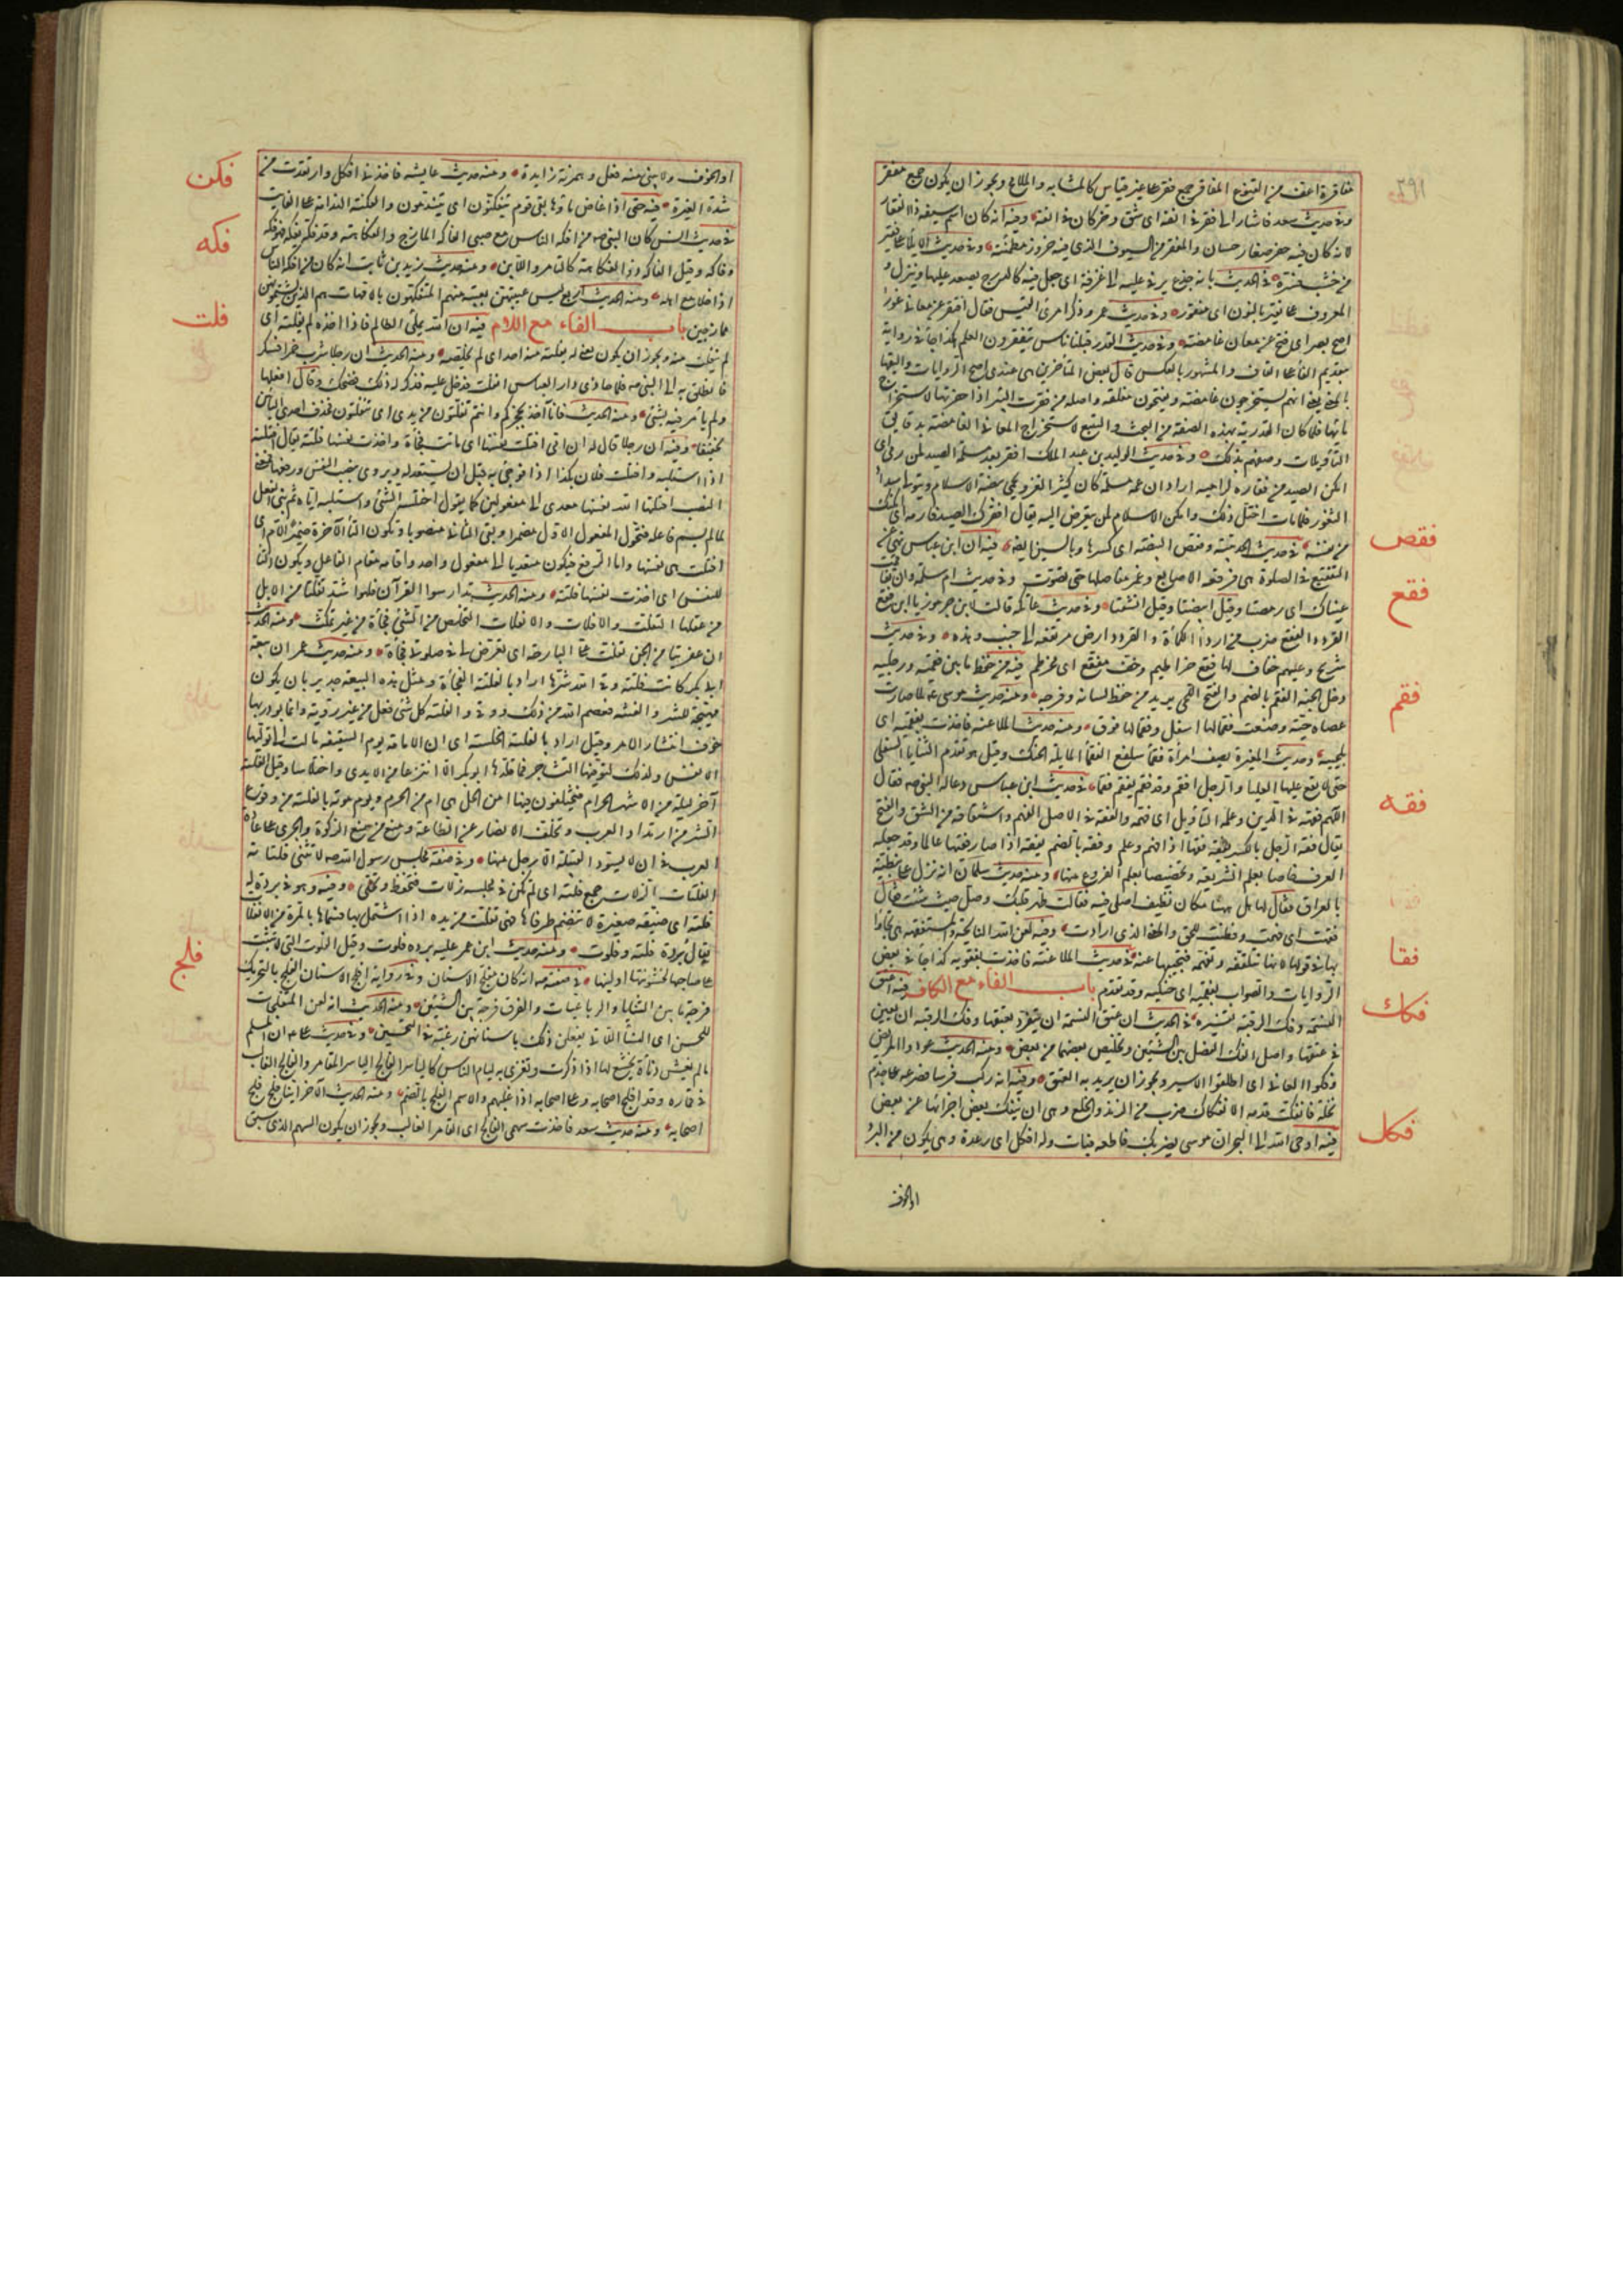 فقاقرة اعف من القبيح المفاقر جمع فقر على غير قياس كالمشابه والملامح ويجوز ان يكون جمع مفقر
وفي حديث سعد فاشار الى فقر في انفه اى شق وحز كان في انفه وفيه انه كان اسم سيفه ذا الفقار
لانه كان فيه حفر صغار حسان والمفقر من السيوف الذى فيه حزوز مطمئنة وفي حديث الايلاء على فقير
من خشب فسره في الحديث بانه جذع يرقى عليه الى غرفة اى جعل فيه كالدرج يصعد عليها وينزل و
المعروف على نقير بالنون اى منقور وفي حديث عمر وذكر امرئ القيس فقال افتقر عن معان عور
اصح بصر اى فتح عن معان غامضة وفي حديث القدر قبلنا ناس يتفقرون العلم هكذا جاء في رواية
بتقديم الفاء على القاف والمشهور بالعكس قال بعض المتأخرين هى عندى اصح الروايات واليقها
بالمعنى يعنى انهم يستخرجون غامضه ويفتحون مغلقه واصله من فقرت البئر اذا حفرتها لاستخراج
مائها فلما كان القدرية بهذه الصفة من البحث والتتبع لاستخراج المعانى الغامضة بدقايق
التأويلات وصفهم بذلك وفي حديث الوليد بن عبد الملك افقر بعد مسلمة الصيد لمن رمى اى
امكن الصيد من فقاره لراميه اراد ان عمه مسلمة كان كثير الغزو يحمى بيضة الاسلام ويتولى سداد
الثغور فلما مات اختل ذلك وامكن الاسلام لمن يتعرض اليه يقال افقرك الصيد فارمه اى امكنك
فقص
من نفسه في حديث الحديبية وفقص البيضة اى كسرها وبالسين ايضا فيه ان ابن عباس نهى عن
فقع
التفقيع في الصلوة هى فرقعة الاصابع وغمز مفاصلها حتى تصوت وفي حديث ام سلمة وان تفاقعت
عيناك اى رمصتا وقيل ابيضتا وقيل انشقتا وفي حديث عاتكة قالت لابن جرموز يا ابن فقع
القردد الفقع ضرب من اردأ الكمأة والقردد ارض مرتفعة الى جنب وهدة وفي حديث
شريح وعليهم خفاف لها فقع خراطيم وخف مفقع اى مخرطم فيه من حفظ ما بين فقميه ورجليه
فقم
دخل الجنة الفقم بالضم والفتح اللحى يريد من حفظ لسانه وفرجه ومنه حديث موسى عم لما صارت
عصاه حية وضعت فقما لها اسفل وفقما لها فوق ومنه حديث الملاعنة فاخذت بفقميه اى
بلحييه وحديث المغيرة يصف امرأة فقماء سلفع الفقماء المايلة الحنك وقيل هو تقدم الثنايا السفلى
حتى لا يقع عليها العليا والرجل افقم وقد فقم يفقم فقما في حديث ابن عباس دعا له النبى صه فقال
فقه
اللهم فقهه في الدين وعلمه التأويل اى فهمه والفقه في الاصل الفهم واشتقاقه من الشق والفتح
يقال فقه الرجل بالكسر يفقه فقها اذا فهم وعلم وفقه بالضم يفقه اذا صار فقيها عالما وقد جعله
العرف خاصا بعلم الشريعة وتخصيصا بعلم الفروع منها ومنه حديث سلمان انه نزل على نبطية
بالعراق فقال لها هل ههنا مكان نظيف اصلى فيه فقالت طهر قلبك وصل حيث شئت فقال
فقهت اى فهمت وفطنت للحق والمعنى الذى ارادت وفيه لعن الله النايحة والمستفقهة هى تجاوبها
فقا
بها في قولها لانها تتلقفه وتفهمه فتجيبها عنه في حديث الملاعنة فاخذت بفقويه كذا جاء في بعض
الروايات والصواب بفقميه اى حنكيه وقد تقدم باب الفاء مع الكاف فيه اعتق
فكك
النسمة وفك الرقبة تفسيره في الحديث ان عتق النسمة ان يتفرد بعتقها وفك الرقبة ان يعين
في عتقها واصل الفك الفصل بين الشيئين وتخليص بعضهما من بعض ومنه الحديث عودوا المريض
وفكوا العانى اى اطلقوا الاسير ويجوز ان يريد به العتق وفيه انه ركب فرسا فصرعه على جذم
نخلة فانفكت قدمه الانفكاك ضرب من الوهن والخلع وهى ان ينفك بعض اجزائها عن بعض
فكل
فيه اوحى الله الى البحر ان موسى يضربك فاطعه فبات وله افكل اى رعدة وهى يكون من البرد
او الخوف
او الخوف ولا يبنى منه فعل وهمزته زايدة ومنه حديث عايشه فاخذنى افكل وارتعدت من
فكن
شدة الغيرة فيه حتى اذا غاض ماؤها بقى قوم يتفكنون اى يتندمون والفكنة الندامة على الفايت
فكه
في حديث انس كان النبى صه من افكه الناس مع صبى الفاكه المازح والاسم الفكاهة وقد فكه يفكه فهو فكه
وفاكه وقيل الفاكه ذو الفكاهة كالتامر واللابن ومنه حديث زيد بن ثابت انه كان من افكه الناس
اذا خلا مع اهله ومنه الحديث اربع ليس غيبتهن بغيبة منهم المتفكهون بالامهات هم الذين يشتمونهن
فلت
ممازحين باب الفاء مع اللام فيه ان الله يملى الظالم فاذا اخذه لم يفلته اى
لم ينفلت منه ويجوز ان يكون بمعنى لم يفلته منه احد اى لم يخلصه ومنه الحديث ان رجلا شرب خمرا فسكر
فانطلق به الى النبى صه فلما حاذى دار العباس انفلت فدخل عليه فذكر له ذلك فضحك وقال افعلها
ولم يأمر فيه بشئ ومنه الحديث فانا آخذ بحجزكم وانتم تفلتون من يدى اى تتفلتون فحذف احدى التائين
تخفيفا وفيه ان رجلا قال له ان امى افتلتت نفسها اى ماتت فجأة واخذت نفسها فلتة يقال افتلته
اذا استلبه وافتلت فلان بكذا اذا فوجئ به قبل ان يستعد له ويروى بنصب النفس ورفعها فمعنى
النصب افتلتها الله نفسها معدى الى مفعولين كما يقول اختلسه الشئ واستلبه اياه ثم بنى الفعل
لما لم يسم فاعله فتحول المفعول الاول مضمرا وبقى الثانى منصوبا وتكون التاء الآخرة ضمير الام اى
افتلتت هى نفسها واما الرفع فيكون متعديا الى مفعول واحد واقامه مقام الفاعل ويكون التاء
للنفس اى اخذت نفسها فلتة ومنه الحديث تدارسوا القرآن فلهو اشد تفلتا من الابل
من عقلها التفلت والافلات والانفلات التخلص من الشئ فجأة من غير تمكث ومنه الحديث
ان عفريتا من الجن تفلت على البارحة اى تعرض لى في صلوتى فجأة ومنه حديث عمر ان بيعة
ابى بكر كانت فلتة وقى الله شرها اراد بالفلتة الفجأة ومثل هذه البيعة جديربان يكون
مهيجة للشر والفتنة فعصم الله من ذلك ووقى والفلتة كل شئ فعل من غير روية وانما بودر بها
خوف انتشار الامر وقيل اراد بالفلتة الخلسة اى ان الامامة يوم السقيفة مالت الى توليها
الانفس ولذلك كثر فيها التشاجر فما قلدها ابو بكر الا انتزعا من الايدى واختلاسا وقيل الفلتة
آخر ليلة من الاشهر الحرام فيختلفون فيها امن الحل هى ام من الحرم ويوم موته بالفلتة من وقوع
الشر من ارتداد العرب وتخلف الانصار عن الطاعة ومنع من منع الزكوة والجرى على عادة
العرب في ان لا يسود القبيلة الا رجل منها وفي صفة مجلس رسول الله صه لا تنثى فلتاته
الفلتات الزلات جمع فلتة اى لم تكن في مجلسه زلات فتحفظ وتحكى وفيه وهو في بردة له
فلتة اى ضيقة صغيرة لا تنضم طرفاها فهى تفلت من يده اذا اشتمل بها فسماها بالمرة من الانفلات
يقال بردة فلتة وفلوت ومنه حديث ابن عمر عليه بردة فلوت وقيل الفلوت التى لا تثبت
فلج
على صاحبها لخشونتها او لينها في صفته صه انه كان مفلج الاسنان وفي رواية افلج الاسنان الفلج بالتحريك
فرجة ما بين الثنايا والرباعيات والفرق فرجة بين الثنيتين ومنه الحديث انه لعن المتفلجات
للحسن اى النساء اللاتى يفعلن ذلك باسنانهن رغبة في التحسين وفي حديث على ان المسلم
ما لم يغش دناءة يخشع لها اذا ذكرت وتغرى به ليام الناس كالياسر الفالج الياسر المقامر والفالج الغالب
في قماره وقد افلج اصحابه وعلى اصحابه اذا غلبهم والاسم الفلج بالضم ومنه الحديث الآخر اينا فلج فلج
اصحابه ومنه حديث سعد فاخذت سهمى الفالج اى القامر الغالب ويجوز ان يكون السهم الذى سبق